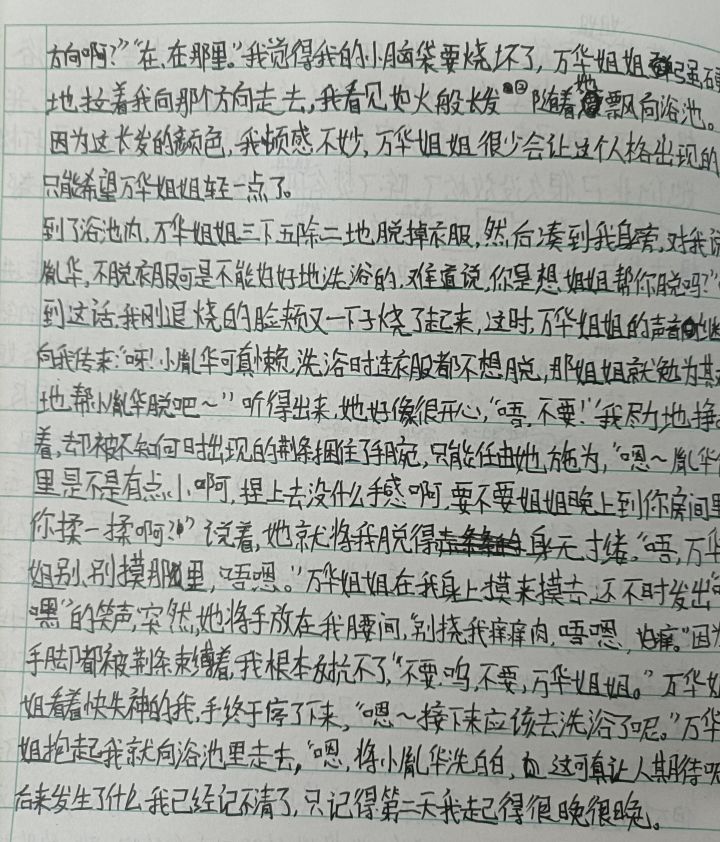 方向啊？”“在、在那里。”我觉得我的小脑袋要烧坏了，万华姐姐
地拉着我向那个方向走去，我看见如火般长发随着她飘向浴池。
因为这长发的颜色，我顿感不妙，万华姐姐很少会让这个人格出现的
只能希望万华姐姐轻一点了。
到了浴池内，万华姐姐三下五除二地脱掉衣服，然后凑到我身旁，对我说
胤华，不脱衣服可是不能好好地洗浴的，难道说，你是想姐姐帮你脱吗？”
到这话，我刚退烧的脸颊又一下子烧了起来，这时，万华姐姐的声音继
向我传来：“呀！小胤华可真懒，洗浴时连衣服都不想脱，那姐姐就勉为其
地帮小胤华脱吧～”听得出来，她好像很开心，“唔，不要！”我尽力地挣
着，却被不知何时出现的荆条捆住了手腕，只能任由她施为，“嗯～胤华
里是不是有点小啊，捏上去没什么手感啊，要不要姐姐晚上到你房间里
你揉一揉啊？”说着，她就将我脱得身无寸缕，“唔，万华
姐别、别摸那里，唔嗯。”万华姐姐在我身上摸来摸去，还不时发出“
嘿”的笑声，突然，她将手放在我腰间，“别挠我痒痒肉，唔嗯，痒。”因为
手脚都被荆条束缚着，我根本反抗不了，“不要，呜，不要，万华姐姐。”万华
姐看着快失神的我，手终于停了下来，“嗯～接下来应该去洗浴了呢。”万华
姐抱起我就向浴池里走去，“嗯，将小胤华洗白白，这可真让人期待呢
后来发生了什么我已经记不清了，只记得第二天我起得很晚很晚。